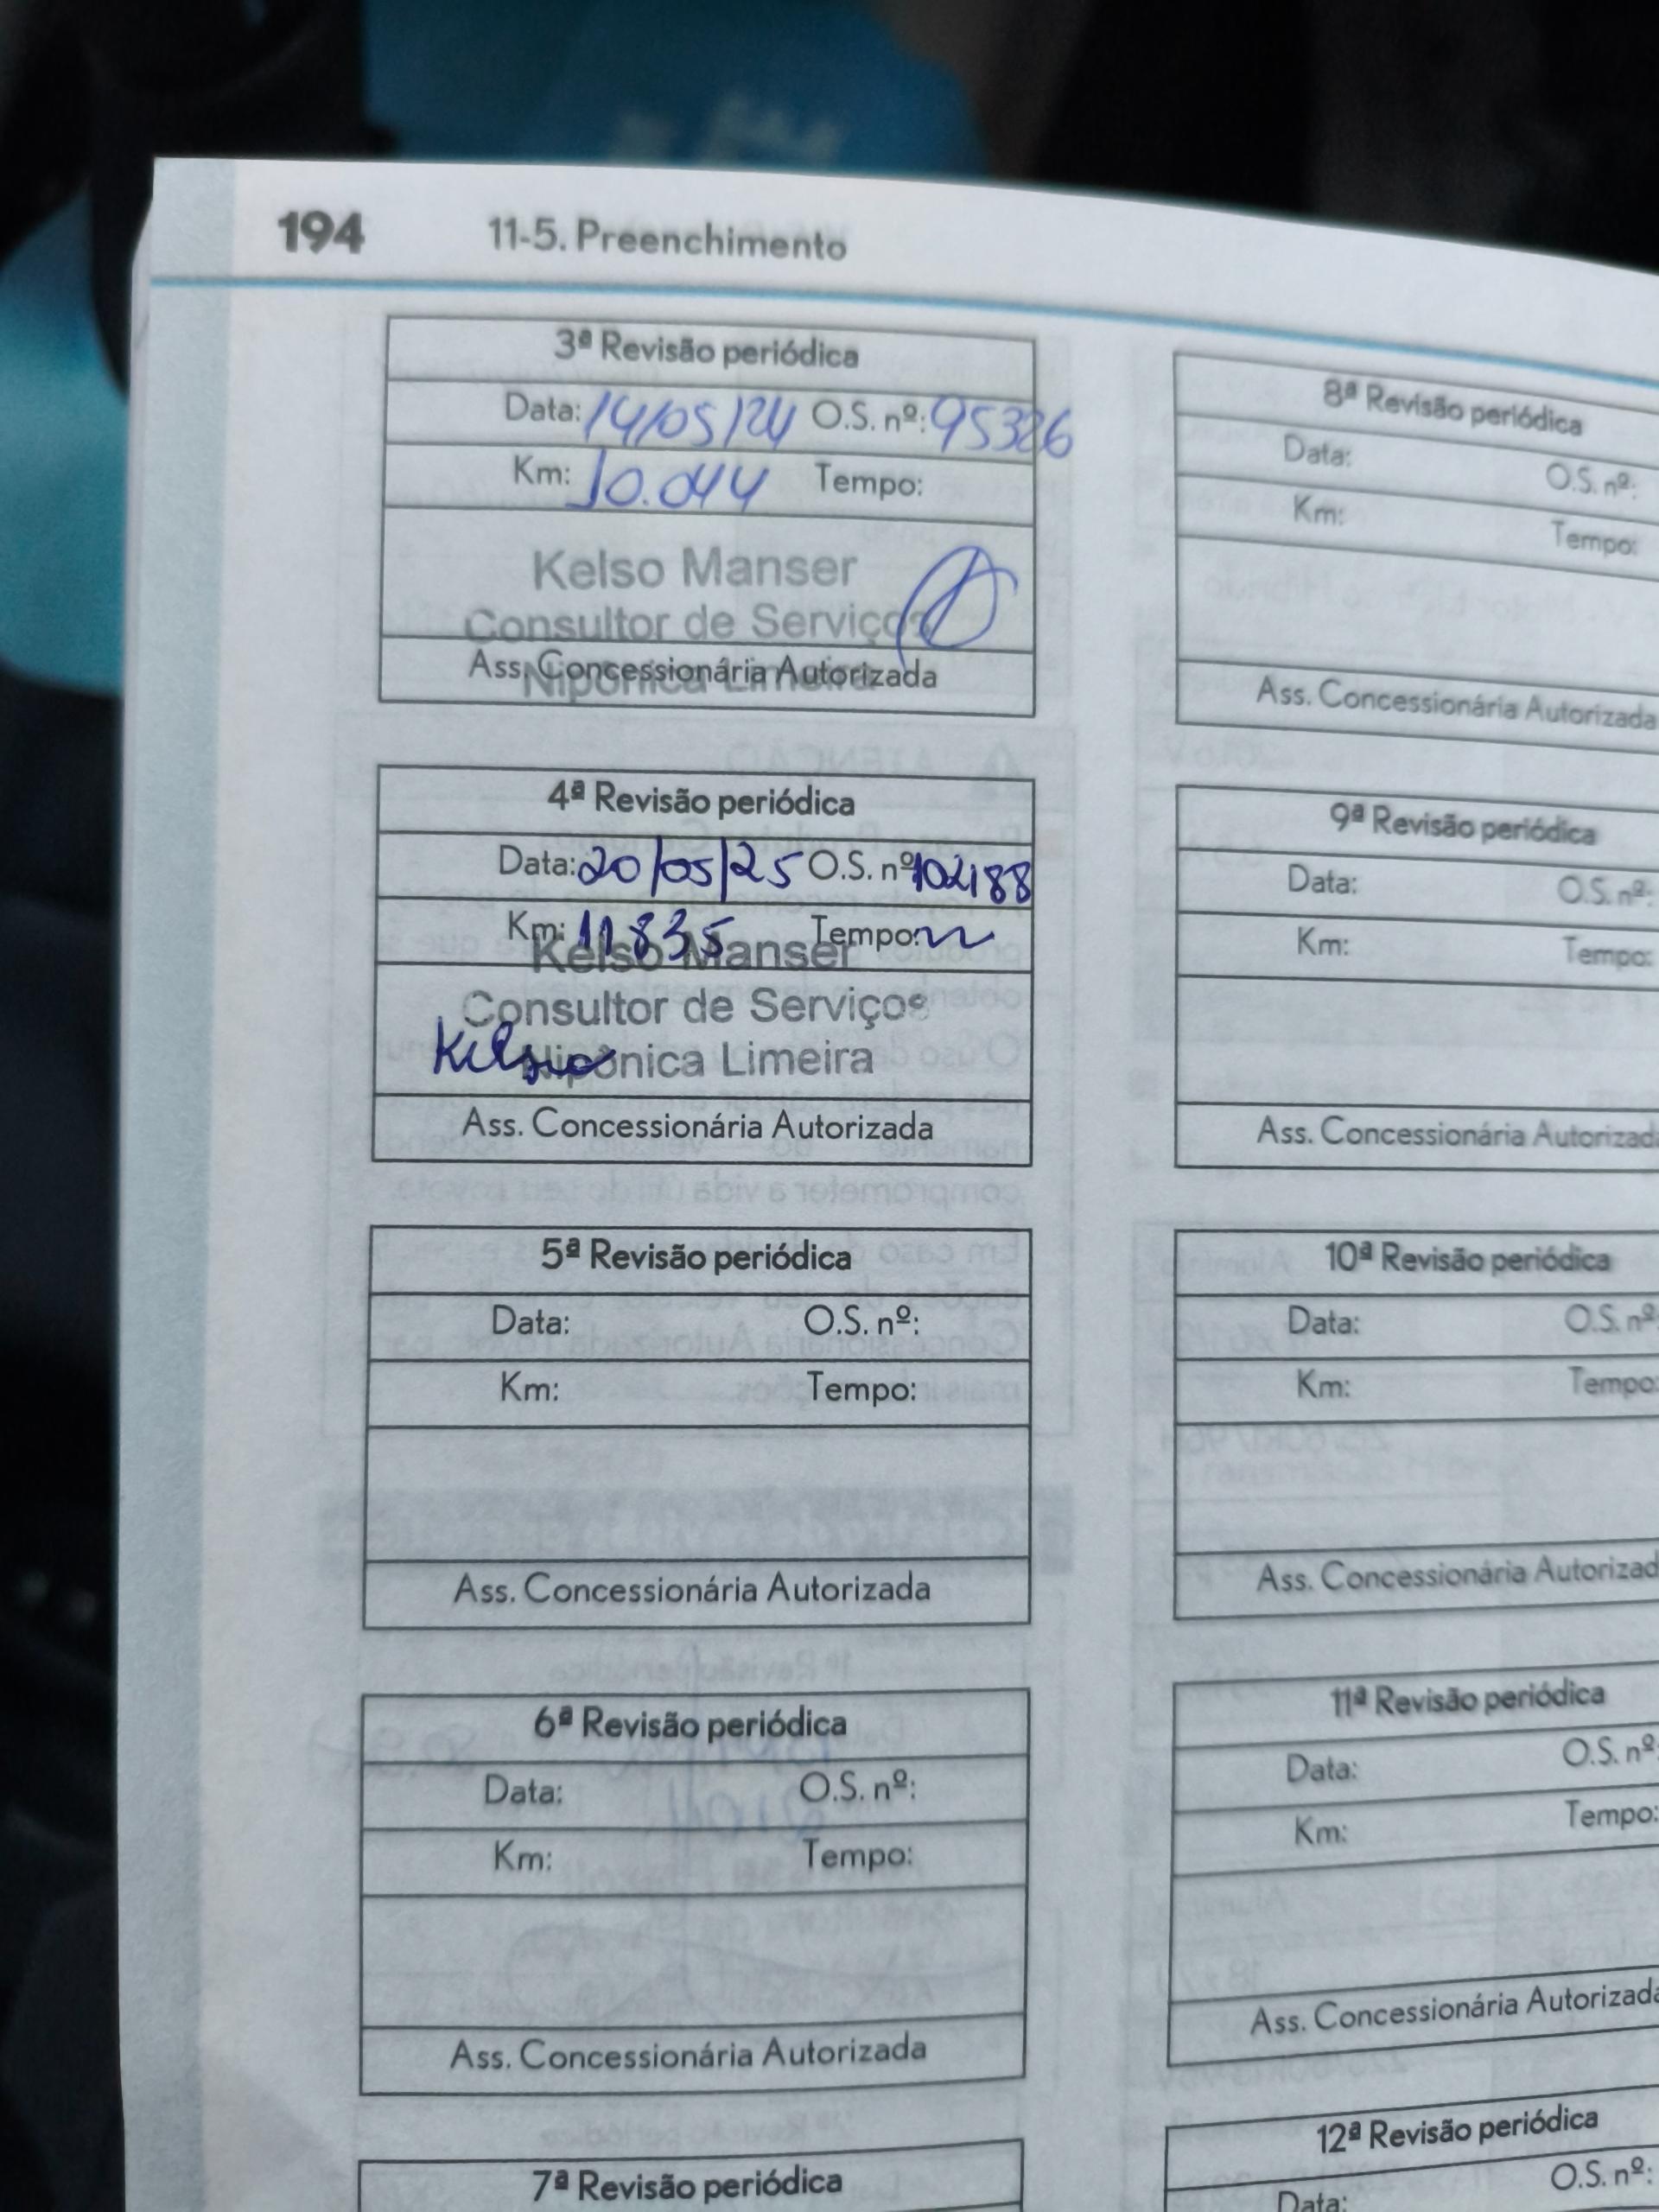 194 11-5. Preenchimento
3ª Revisão periódica
Data: 14/05/24 O.S. nº: 95326
Km: 10.044 Tempo:
Kelso Manser
Consultor de Serviços
Ass. Concessionária Autorizada
Nipônica Limeira
4ª Revisão periódica
Data: 20/05/25 O.S. nº 102188
Km: 11835 Tempo:
Kelso Manser
Consultor de Serviços
Kelso Nipônica Limeira
Ass. Concessionária Autorizada
5ª Revisão periódica
Data: O.S. nº:
Km: Tempo:
Ass. Concessionária Autorizada
6ª Revisão periódica
Data: O.S. nº:
Km: Tempo:
Ass. Concessionária Autorizada
7ª Revisão periódica
8ª Revisão periódica
Data: O.S. nº:
Km: Tempo:
Ass. Concessionária Autorizada
9ª Revisão periódica
Data: O.S. nº:
Km: Tempo:
Ass. Concessionária Autorizada
10ª Revisão periódica
Data: O.S. nº:
Km: Tempo:
Ass. Concessionária Autorizad
11ª Revisão periódica
Data: O.S. nº:
Km: Tempo:
Ass. Concessionária Autorizada
12ª Revisão periódica
Data: O.S. nº: